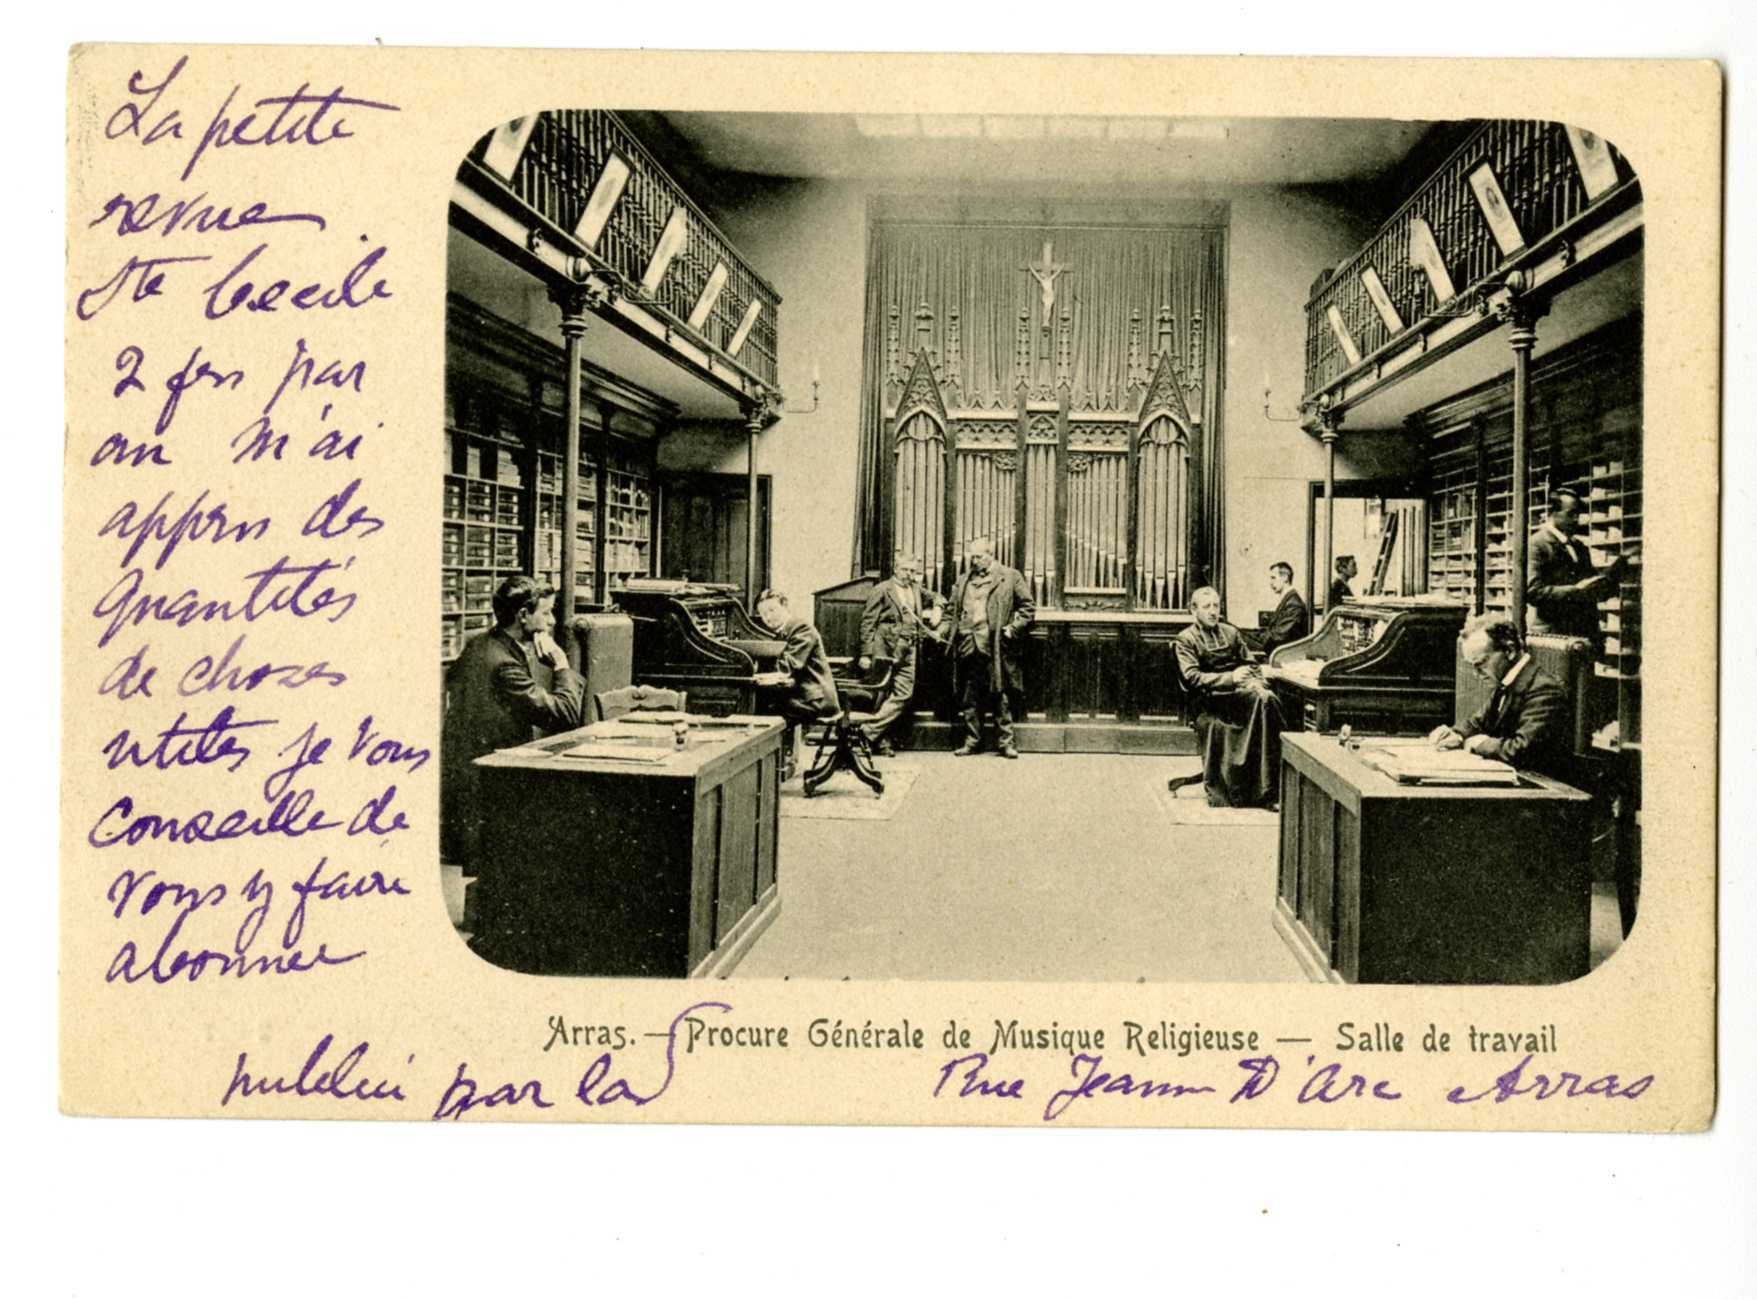 La petite
revue
Ste Cecile
2 frs par
an m'ai
appris des
quantités
de choses
utiles je vous
conseille de
vous y faire
abonner
Arras. — Procure Générale de Musique Religieuse — Salle de travail
publui par la
Rue Jeanne D'Arc Arras